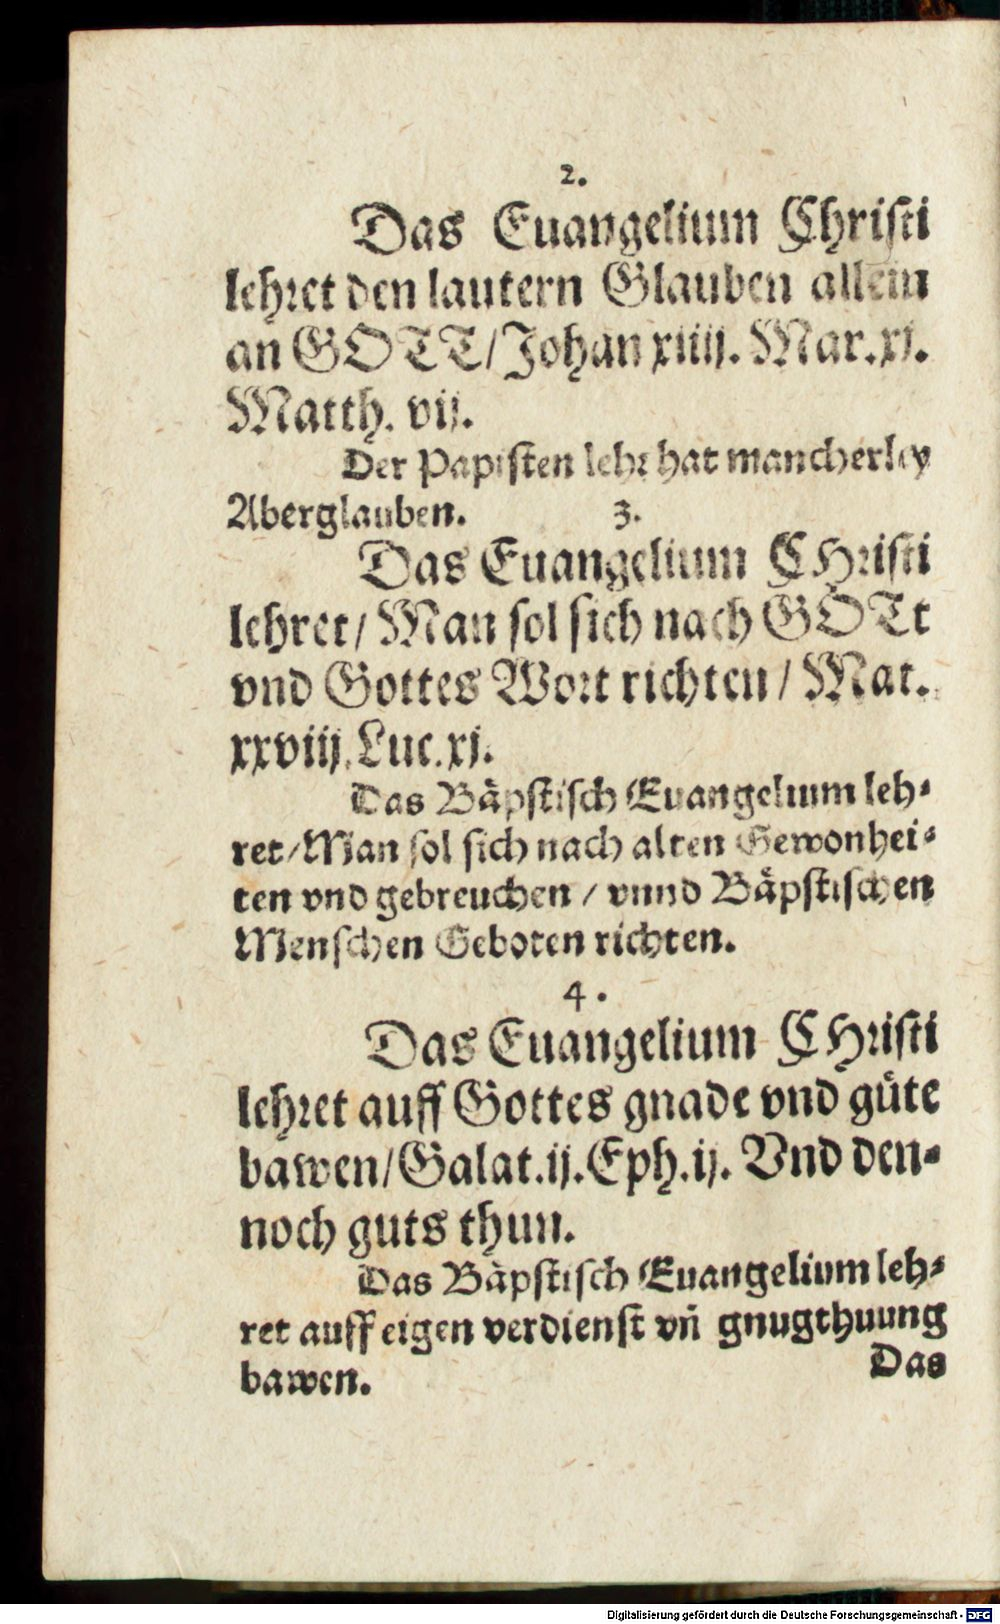 2.
Das Euangelium Christi
lehret den lautern Glauben allein
an GOTT/ Johan xiiij. Mar. xj.
Matth. vij.
Der Papisten lehr hat mancherley
Aberglauben. 3.
Das Euangelium CHristi
lehret/ Man sol sich nach GOTt
vnd Gottes Wort richten/ Mat.
xxviij. Luc. xj.
Das Bäpstisch Euangelium leh-
ret/ Man sol sich nach alten Gewonhei-
ten vnd gebreuchen/ vnnd Bäpstischen
Menschen Geboten richten.
4.
Das Euangelium CHristi
lehret auff Gottes gnade vnd güte
bawen/ Galat. ij. Eph. ij. Vnd den-
noch guts thun.
Das Bäpstisch Euangelium leh-
ret auff eigen verdienst vñ gnugthuung
bawen. Das
Digitalisierung gefördert durch die Deutsche Forschungsgemeinschaft - DFG